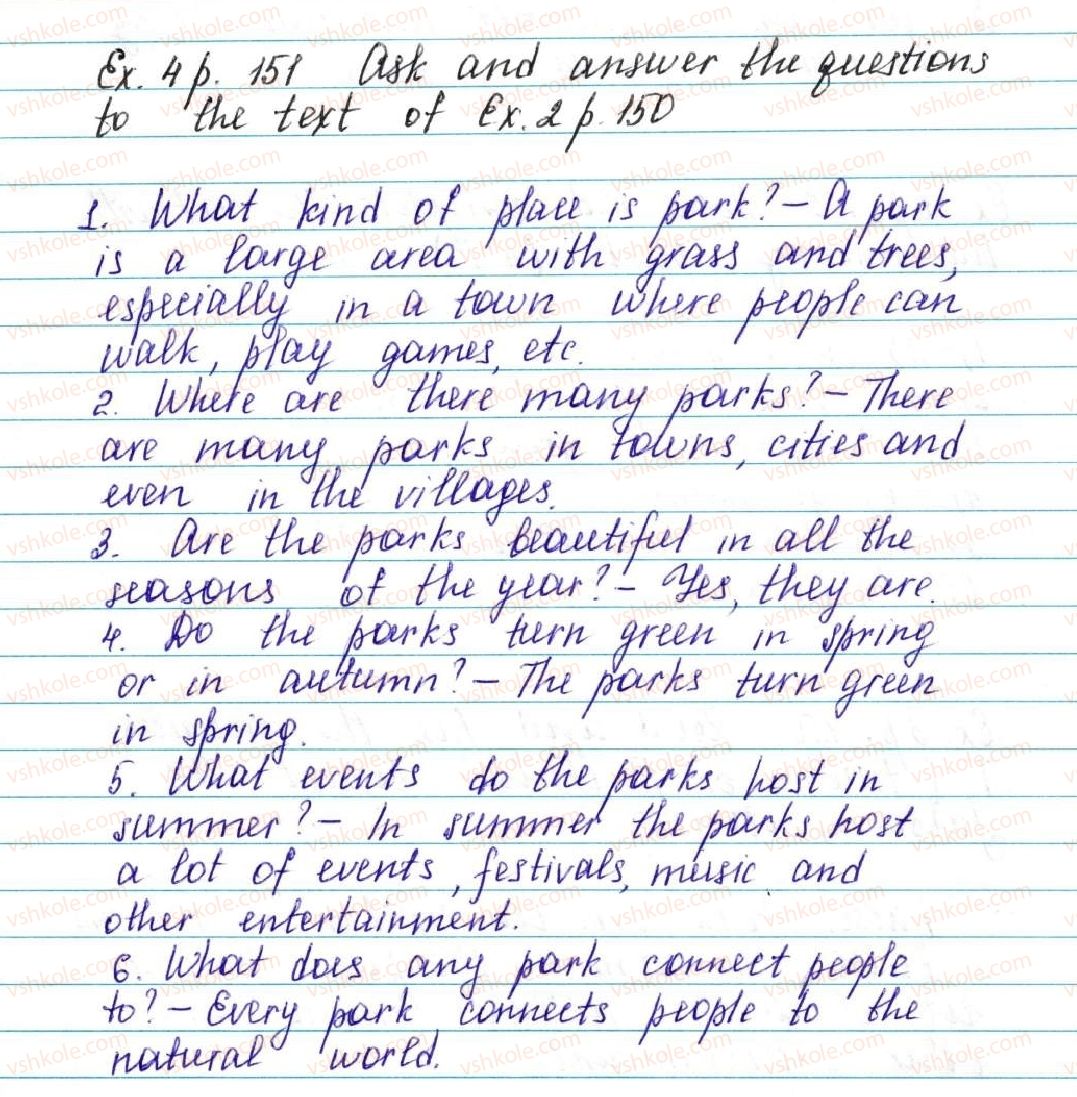 Ex. 4 p. 151 Ask and answer the questions
to the text of Ex. 2 p. 150
1. What kind of place is park? – A park
is a large area with grass and trees,
especially in a town where people can
walk, play games, etc.
2. Where are there many parks? – There
are many parks in towns, cities and
even in the villages.
3. Are the parks beautiful in all the
seasons of the year? – Yes, they are.
4. Do the parks turn green in spring
or in autumn? – The parks turn green
in spring.
5. What events do the parks host in
summer? – In summer the parks host
a lot of events, festivals, music and
other entertainment.
6. What does any park connect people
to? – Every park connects people to the
natural world.
vshkole.com